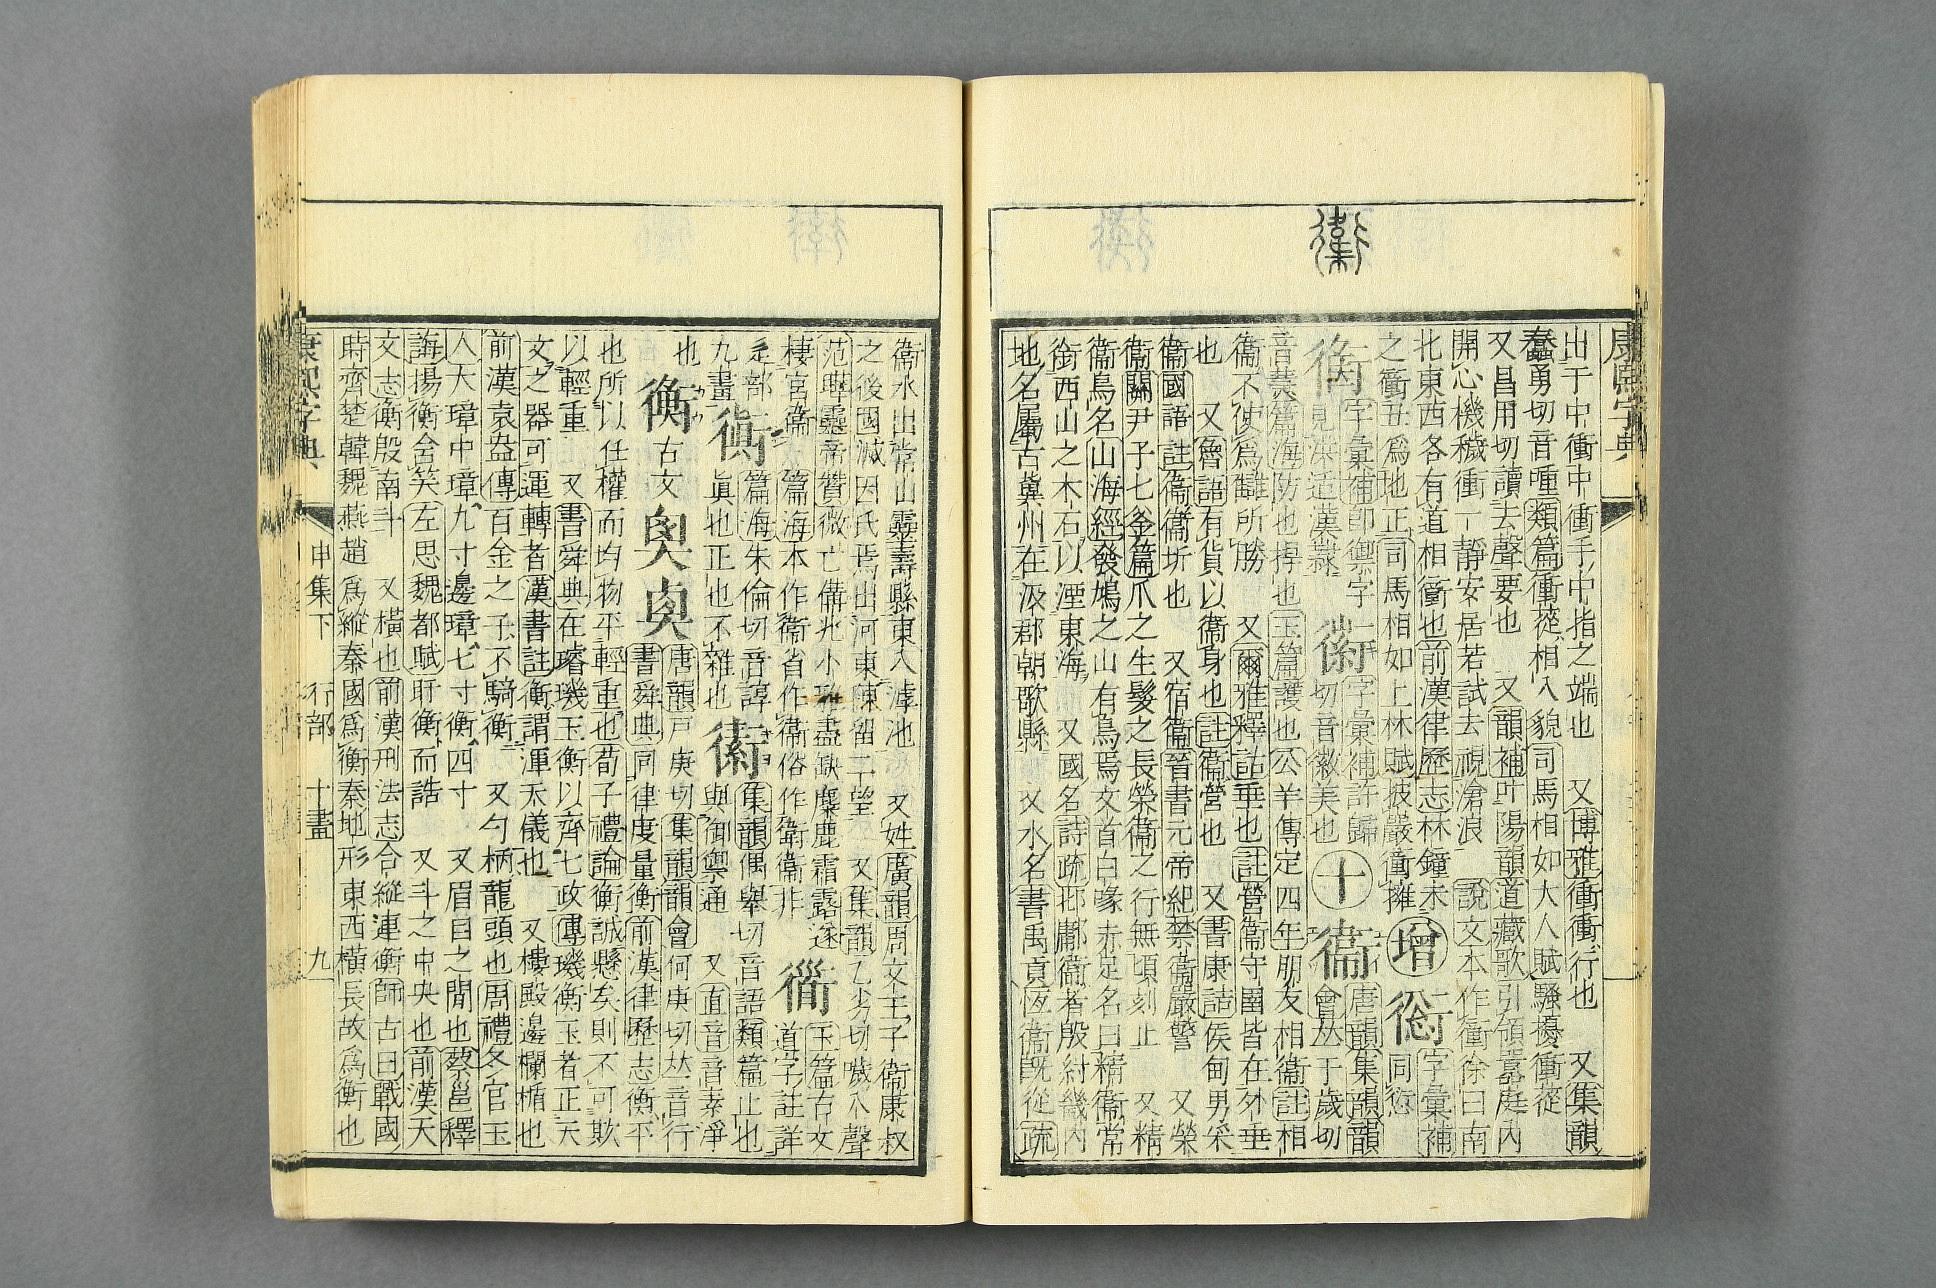 康熙字典
出于中衝中衝手中指之端也 又博雅衝衝行也 又集韻
蠢勇切音喠類篇衝蓯相入貌司馬相如大人賦騷擾衝蓯
又昌用切讀去聲要也 又韻補叶陽韻道藏歌引領囂庭內
開心機穢衝一靜安居若試去視滄浪 說文本作衝徐曰南
北東西各有道相衝也前漢律歷志林鐘未
之衝丑爲地正司馬相如上林賦披巖衝擁
增
字彙補
同
字彙補卽禦字
見洪造漢隸
字彙補許歸
切音徽美也
十
衞
唐韻集韻韻
會𠀤于歲切
音
篇海防也捍也玉篇護也公羊傳定四年朋友相衞註相
衞不使爲讎所勝 又爾雅釋詁垂也註營衞守圉皆在外垂
也 又齊語有貨以衞身也註衞營也 又書康誥侯甸男采
衞國語註衞衞圻也 又宿衞晉書元帝紀禁衞嚴警 又榮
衞關尹子七釜篇爪之生髮之長榮衞之行無頃刻止 又精
衞鳥名山海經發鳩之山有鳥焉文首白喙赤足名曰精衞常
銜西山之木石以湮東海 又國名詩疏邶鄘衞者殷紂畿內
地名屬古冀州在汲郡朝歌縣 又水名書禹貢恆衞旣從疏
衞水出常山靈壽縣東入滹池 又姓廣韻周文王子衞康叔
之後國滅因氏焉出河東陳留二望 又集韻乙劣切噦入聲
范曄靈帝贊微亡備兆小雅盡缺麋鹿霜露遂
棲宮衞 篇海本作衞省作衛俗作衞衞非
玉篇古文
道字註詳
辵部
九畫
篇海朱倫切音諄
眞也正也不雜也
集韻偶舉切音語類篇止也
與御禦通 又直音音素淨
也
衡
古文
唐韻戸庚切集韻韻會何庚切𠀤音行
書舜典同律度量衡前漢律歷志衡平
也所以任權而均物平輕重也荀子禮論衡誠懸矣則不可欺
以輕重 又書舜典在璿璣玉衡以齊七政傳璣衡玉者正天
文之器可運轉者漢書註衡謂渾天儀也 又樓殿邊欄楯也
前漢袁盎傳百金之子不騎衡 又勺柄龍頭也周禮冬官玉
人大璋中璋九寸邊璋七寸衡四寸 又眉目之閒也蔡邕釋
誨揚衡含笑左思魏都賦盱衡而誥 又斗之中央也前漢天
文志衡殷南斗 又橫也前漢刑法志合縱連衡師古曰戰國
時齊楚韓魏燕趙爲縱秦國爲衡秦地形東西橫長故爲衡也
康熙字典 申集下 行部 十畫 九